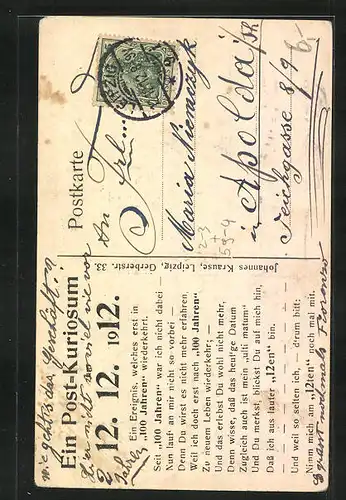 Ein Post-Kuriosum
12. 12. 1912.
Ein Ereignis, welches erst in
„100 Jahren" wiederkehrt.
Seit "100 Jahren" war ich nicht dabei —
Nun lauf an mir nicht so vorbei —
Denn Du wirst es nicht mehr erfahren
Weil ich doch erst nach "100 Jahren"
Zu neuem Leben wiederkehr;
Und das erlebst Du wohl nicht mehr,
Denn wisse, daß das heut'ge Datum
Zugleich auch ist mein „ulti matum"
Und Du merkst, blickst Du auf mich hin,
Daß ich aus lauter „12en" bin.
Und weil so selten ich, — drum bitt:
Nimm mich am „12ten" noch mal mit.
wie geht's der Geschäft
nicht so viel wie vor
Jahren
Johannes Krause, Leipzig, Gerberstr. 33.
Postkarte
An Frl.
Maria Niemczyk
in Apolda i/Th
Teichgasse 8/9
LEIPZIG